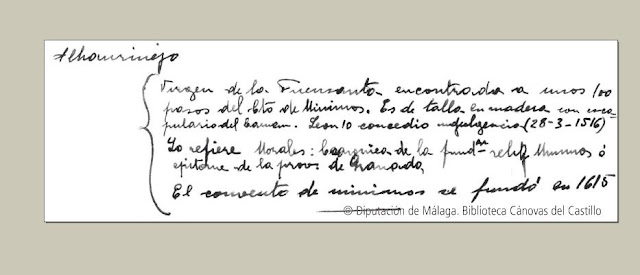 Alhaurinejo
Virgen de la Fuensanta encontrada a unos 100
pasos del Cto de Minimos. Es de talla en madera con esca-
pulario del Carmen. Leon 10 concedio indulgencia (28-3-1516)
Lo refiere Morales: de la relig Minimos ó
epitome de la prova de Granada
El convento de minimos se fundó en 1615
© Diputación de Málaga. Biblioteca Cánovas del Castillo